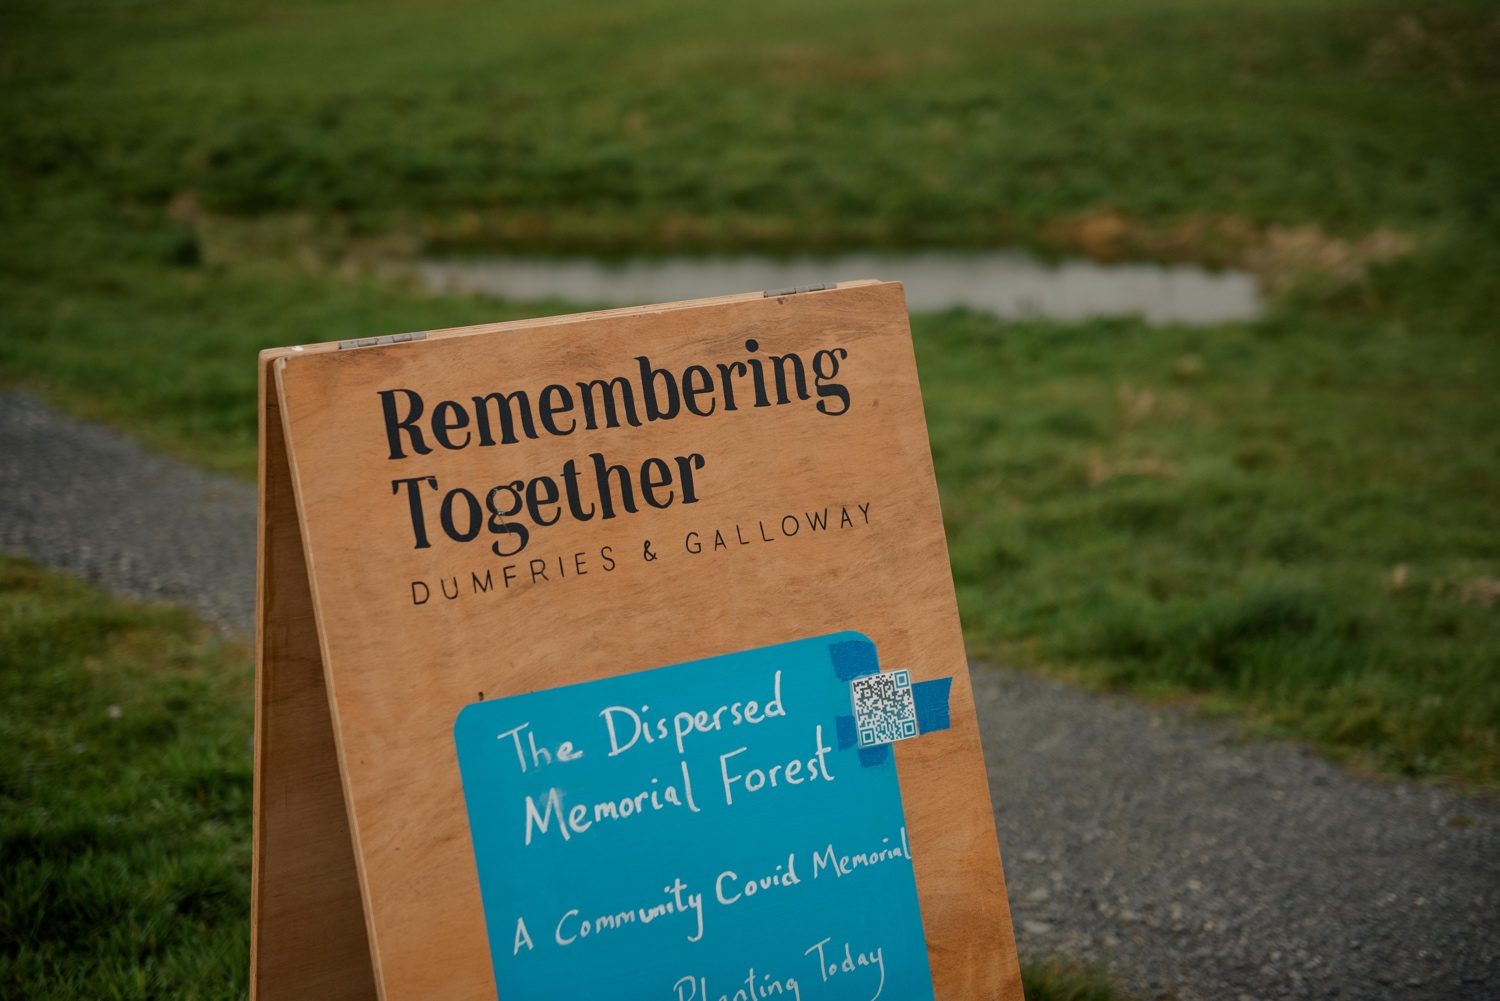 Remembering
Together
DUMFRIES & GALLOWAY
The Dispersed
Memorial Forest
A Community Covid Memorial
Planting Today